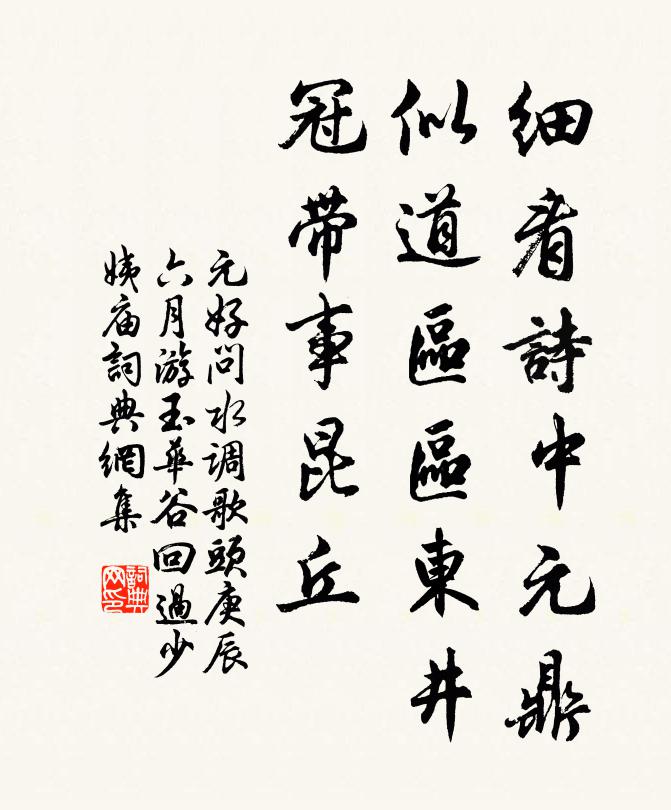 细看詩中元鼎
似道區區東井
冠带事昆丘
元好问水调歌頭庚辰
六月游玉華谷回過少
姨庙詞典網集
詞典网印